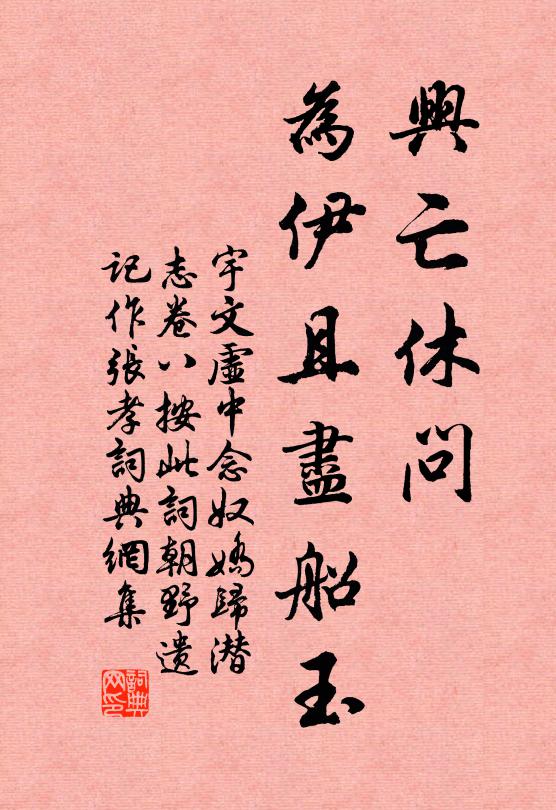 興亡休問
為伊且盡船玉
宇文虛中念奴嬌歸潜
志卷八按此詞朝野遗
记作張孝詞典網集
詞典
网印